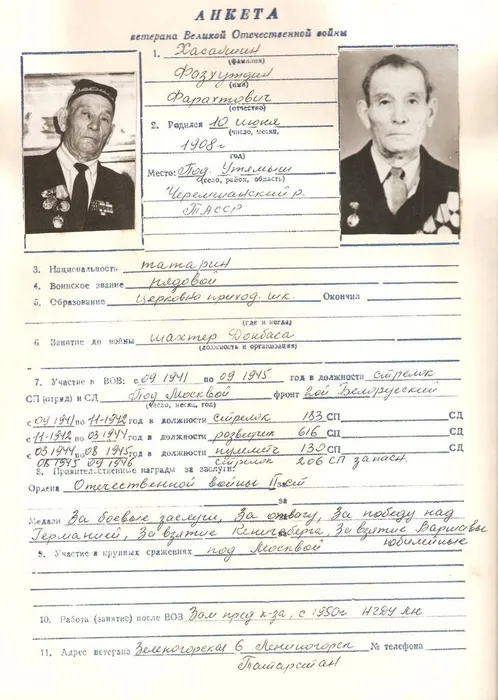 АНКЕТА
ветерана Великой Отечественной войны
1. Хасаншин
(фамилия)
Фазхутдин
(имя)
Фарахтович
(отчество)
2. Родился 10 июня
(число, месяц,
1908г
год)
Место: Под. Утямыш
(село, район, область)
Черемшанский р.
ТАССР
3. Национальность татарин
4. Воинское звание рядовой
5. Образование Церковно приход. шк. Окончил
(где и когда)
6 Занятие до войны шахтер Донбаса
(должность и организация)
7. Участие в ВОВ: с 09 1941 по 09 1945 год в должности стрелок
СП (отряд) и СД Под Москвой фронт 2ой Белорусский
(число, месяц, год)
с 09 1941 по 11-1942 год в должности стрелок 133 СП СД
с 11-1942 по 03 1944 год в должности разведчик 616 СП СД
с 03 1944 по 08 1945 год в должности пулемётч 139 СП СД
08 1945 09 1946 стрелок 206 СП запасн.
8. Правительственные награды за заслуги:
Ордена Отечественной войны II ст за
за
Медали За боевые заслуги, За отвагу, За победу над
Германией, За взятие Кенигсберга, За взятие Варшавы
юбилейные
9. Участие в крупных сражениях под Москвой
10. Работа (занятие) после ВОВ Зам пред к-за, с 1950г НГДУ Лн
11. Адрес ветерана Зеленогорская 6 Лениногорск № телефона
Татарстан